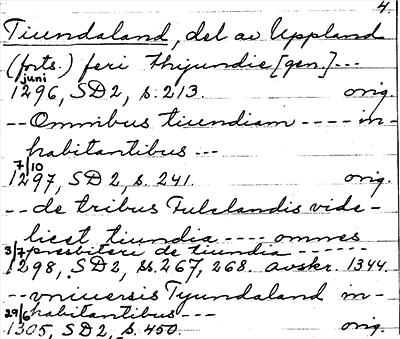 4.
Tiundaland, del av Uppland
(forts.) feri Thijundie [gen.]---
juni
1296, SD2, s. 213. orig.
-- Omnibus tiundiam ---- in-
habitantibus ---
7/10
1297, SD2, s. 241. orig.
-- de tribus Fulslandis vide-
licet tiundia ---- omnes
presbiteri de tiundia ------
3/7
1298, SD2, ss. 267, 268. avskr. 1344.
-- vniuersis Tyundaland in-
habitantibus ---
29/6
1305, SD2, s. 450. orig.